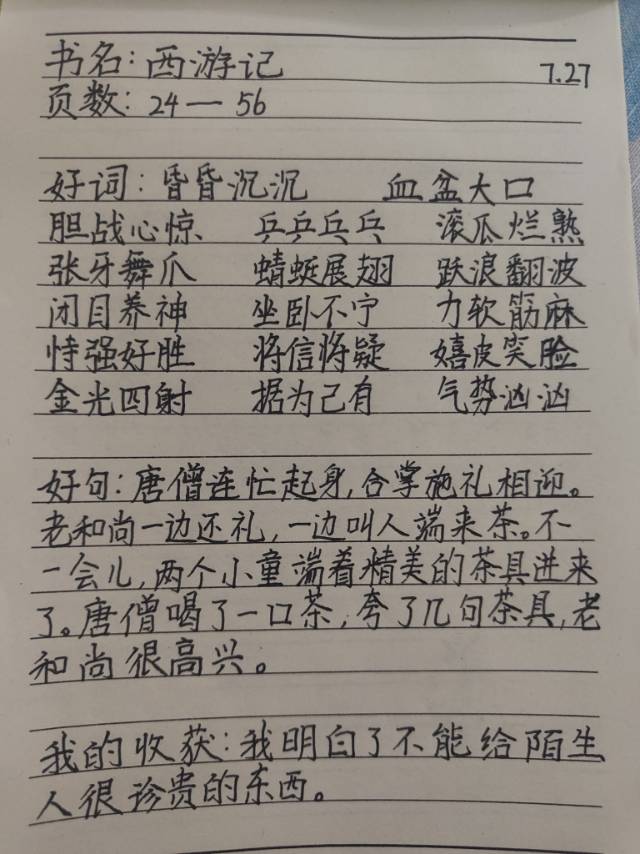 书名:西游记 7.27
页数:24—56
好词:昏昏沉沉 血盆大口
胆战心惊 乒乒乓乓 滚瓜烂熟
张牙舞爪 蜻蜓展翅 跃浪翻波
闭目养神 坐卧不宁 力软筋麻
恃强好胜 将信将疑 嬉皮笑脸
金光四射 据为己有 气势汹汹
好句:唐僧连忙起身,合掌施礼相迎。
老和尚一边还礼,一边叫人端来茶。不
一会儿,两个小童端着精美的茶具进来
了。唐僧喝了一口茶,夸了几句茶具,老
和尚很高兴。
我的收获:我明白了不能给陌生
人很珍贵的东西。